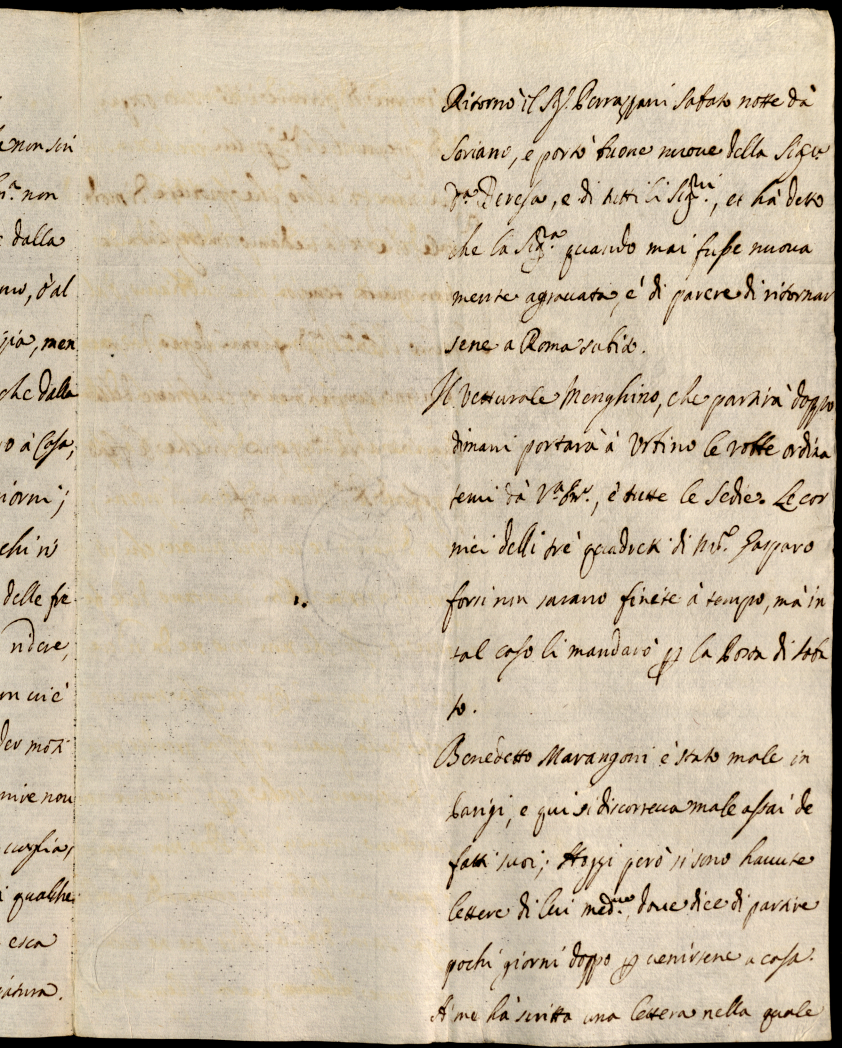 e non sen
non
dalla
mo, ò al
men
che dalla
o à Casa,
giorni;
chi n'
delle fre
ridere,
on cu è
der moti
nire non
i qualche
esca
Ritornò il Sig.r Perrazzani sabato notte dà
Soriano, e portò buone nuove della Sig.ra
D.a Teresa, e di tutti li Sig.ri, et hà detto
che la Sig.ra quando mai fusse nuova
mente agravata, è di parere di ritornar
sene a Roma subito.
Il Vetturale Menghino, che partirà doppo
dimani portarà à Urbino le robbe ordina
temi dà V.a Em., è tutte le sedie. Le cor
nici delli trè quadretti di Gasparo
forsi non sarano finite à tempo, mà in
tal caso li mandarò p la Posta di Saba
to.
Benedetto Marangoni è stato male in
Parigi, e qui si discorreva male assai de
fatti suoi; Hoggi però si sono havute
lettere di lui med.mo dove dice di partire
pochi giorni doppo p venirsene a casa.
A' me hà scritta una lettera nella quale